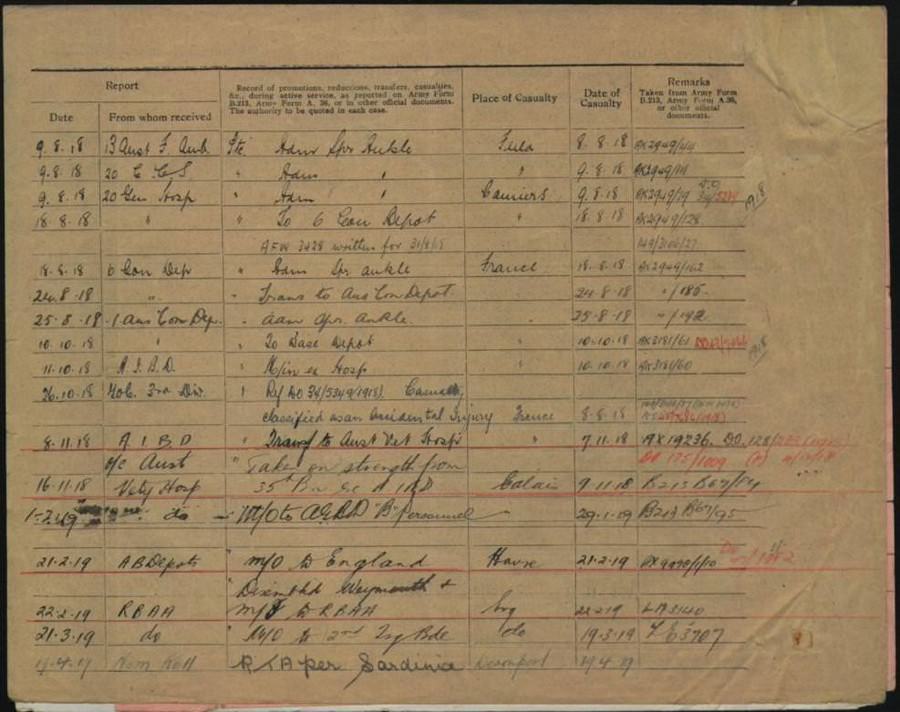 Report
Record of promotions, reductions, transfers, casualties,
&c., during active service, as reported on Army Form
B.213, Army Form A. 36, or in other official documents.
The authority to be quoted in each case.
Place of Casualty
Date of
Casualty
Remarks
Taken from Army Form
B.213, Army Form A.36,
or other official
documents.
Date From whom received
9.8.18 13 Aust F. Amb. Pte Adm Spr Ankle Field 8.8.18 AK2949/
9.8.18 20 C C S " Adm " " 9.8.18 AK2949/
9.8.18 20 Gen Hosp " Adm " Camiers 9.8.18 AK2949/19
18.8.18 " " To 6 Con Depot " 18.8.18 AK2949/128
AFW 3428 written for 31/8/18
18.8.18 6 Con Dep " Adm Spr ankle France 18.8.18 AK2949/162
24.8.18 " " Trans to Aus Con Depot 24.8.18 "/185
25.8.18 1 Aus Con Dep. " Adm Spr. Ankle. 25.8.18 "/192
10.10.18 " " To Base Depot " 10.10.18 AK3181/61
11.10.18 A.I.B.D. " M/in ex Hosp " 10.10.18 AK3181/60
26.10.18 GOC. 3rd Div. " Ref DO 34/5349(1918). Casualty
classified as an Accidental Injury France 8.8.18
8.11.18 A I B D " Transf to Aust Vet Hosp " 7.11.18 AX19236. DO.
DO 175/1009
o/c Aust " Taken on strength from
16.11.18 Vety Hosp 35th Bn A I B D Calais 9.11.18 B213
do M/O to AGBD "B" personnel 29.1.19 B213
21.2.19 A B Depots " M/O to England Havre 21.2.19
" Disembkd Weymouth &
22.2.19 RBAA M/I to RBAA Eng 22.2.19 LA3140
21.3.19 do " M/O to 2nd Trg Bde do 19.3.19 LE3707
Nom Roll RTA per Sardinia Devonport